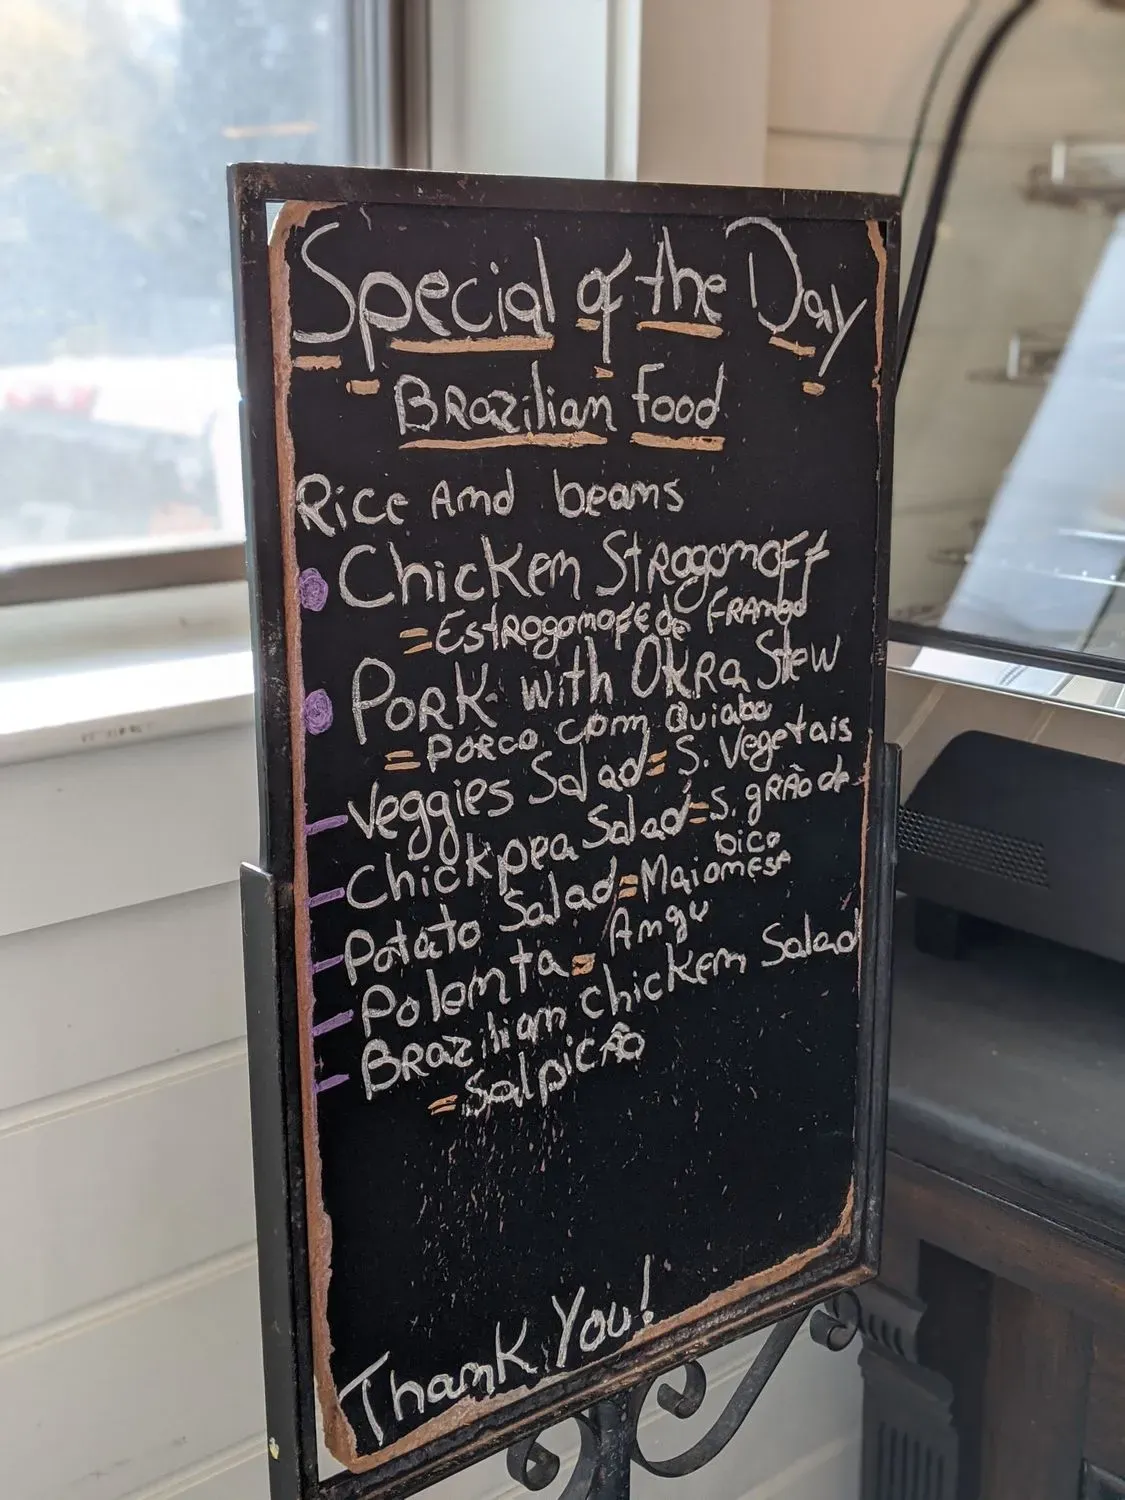 Special of the Day
Brazilian food
Rice Amd beams
Chickem Strogomoff
= Estrogomofe de Framgo
Pork with Okra Stew
= Porco com Quiabo
Veggies Salad = S. Vegetais
Chickpea Salad = S. grão de bico
Potato Salad = Maiomese
Polemta = Amgu
Braziliam chickem Salad
= Salpicão
Thamk You!